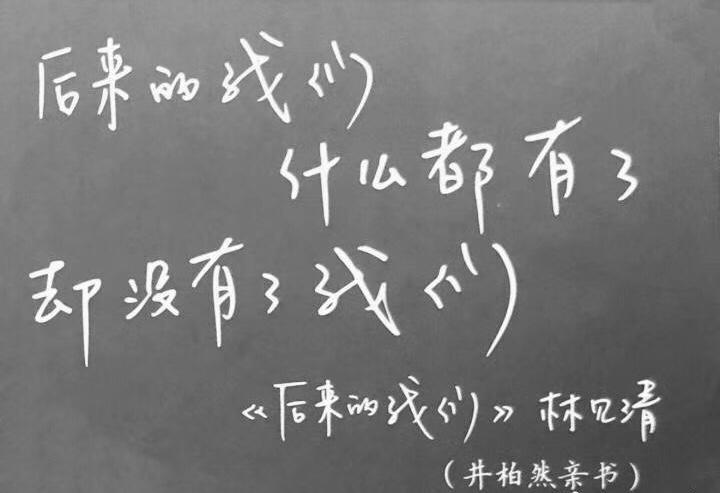 后来的我们
什么都有了
却没有了我们
《后来的我们》林见清
(井柏然亲书)